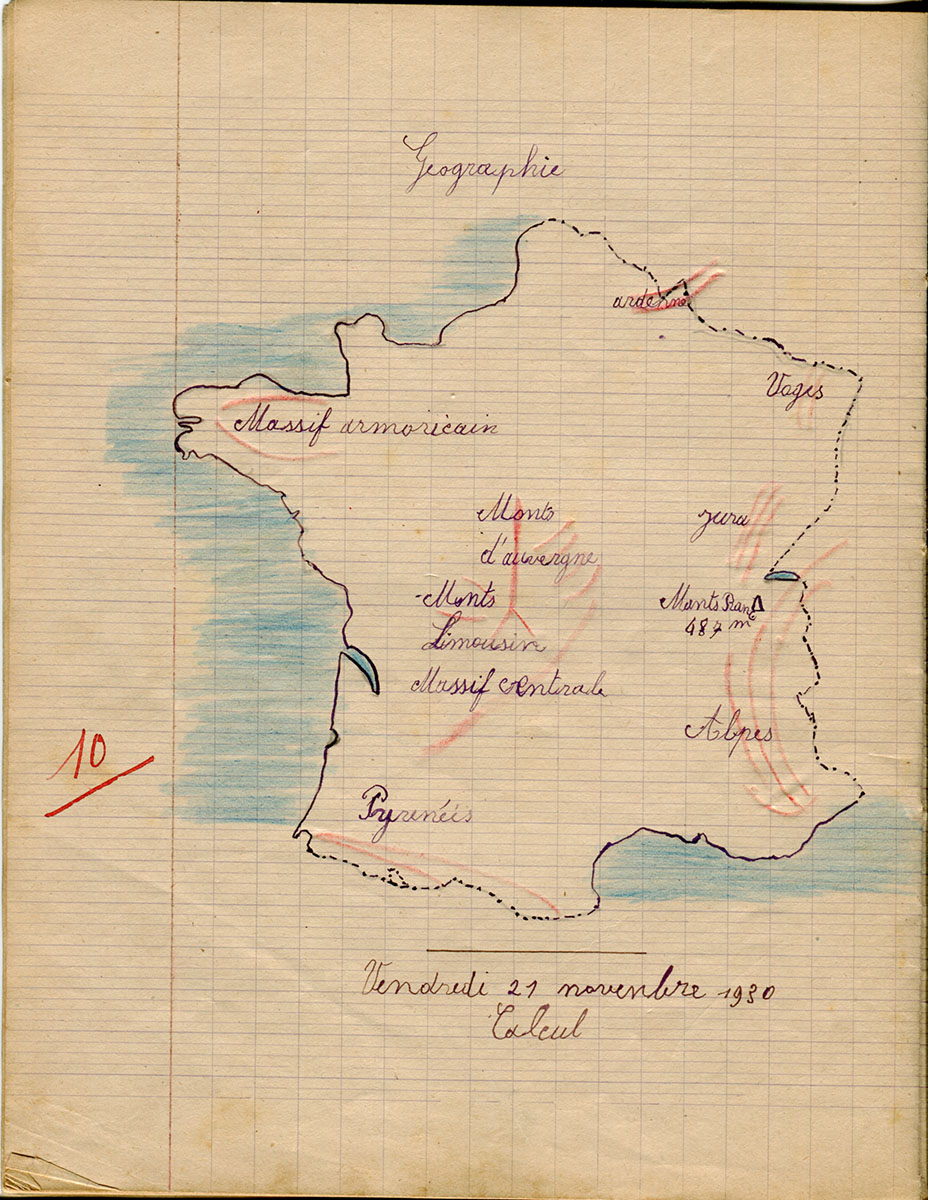 Géographie
ardenne
Voges
Massif armoricain
Monts
d'auvergne
jura
Monts
Limousin
Monts Blanc
487 m
Massif centrale
Alpes
10
Pyrenéis
Vendredi 21 novenbre 1930
Calcul